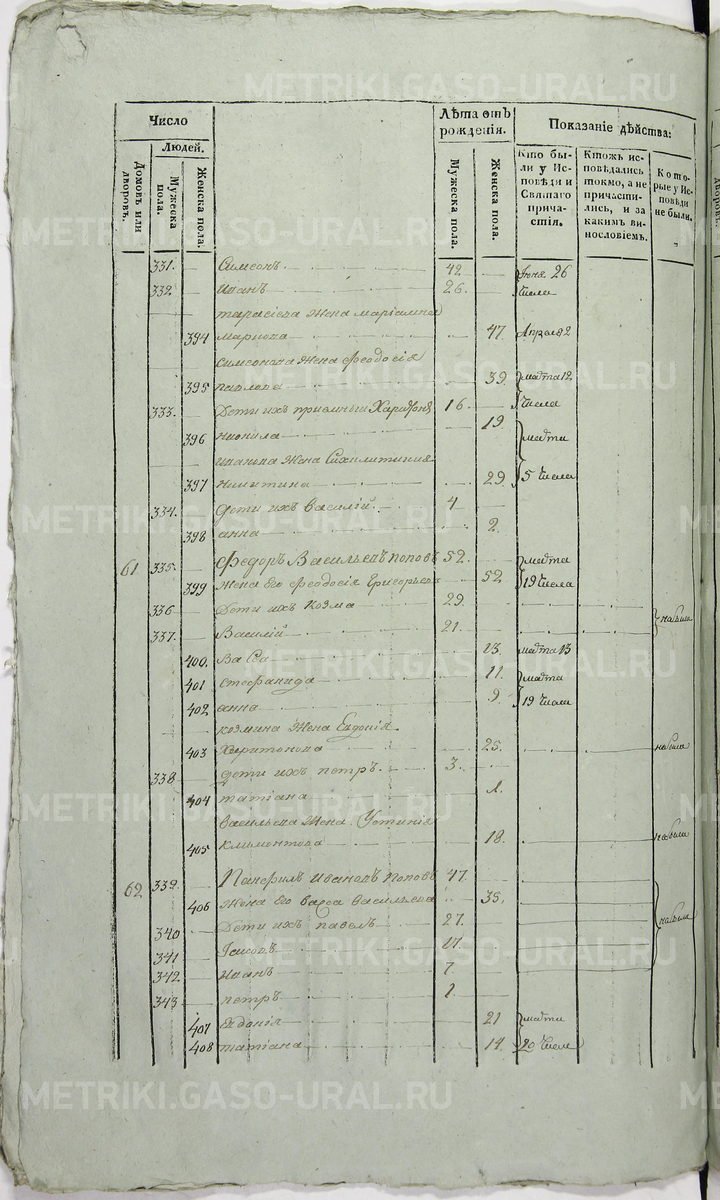 METRIKI.GASO-URAL.RU
Число
Людей.
Домовъ или дворовъ.
Мужеска пола.
Женска пола.
Лѣта отъ рожденія.
Мужеска пола.
Женска пола.
Показаніе дѣйства:
Кто были у Исповѣди и Святаго причастія.
Ктожъ исповѣдались токмо, а не причастились, и за какимъ винословіемъ.
Которые у Исповѣди не были.
331. Симеонъ 42 Іюня 26
332 Иванъ 26. Числа
тарасіева жена маріамна
394 маркова 47. Апреля 2
симеонова жена Феодосіа
395 павлова 39. марта 12
333. Дети ихъ приемныи Харитонъ 16. Числа
396 нионила 19 марта
иванова жена
397 никитина 29 5 Числа
334. дети ихъ Василій 4
398 анна 2
61 335. Федоръ Васильевъ поповъ 52. марта
399 жена его Феодосіа Григорьева 52. 19 Числа
336 Дети ихъ козма 29. небыли
337. Василій 21.
400. Васа 13. марта 13
401 стефанида 11. марта
402 анна 9 19 Числа
козмина жена Евдокіа
403 Харитонова 25. небыла
338 дети ихъ петръ 3.
404 татіана 1.
васильева жена Устиніа
405 климонтова 18. небыла
62 339. Панфилъ Ивановъ поповъ 47.
406 жена его васса васильева 35.
340 Дети ихъ павелъ 27. небыли
341 17.
342 Иванъ 7
343 петръ 1
407 евдокіа 21 марта
408 татіана 14. 20 Числа